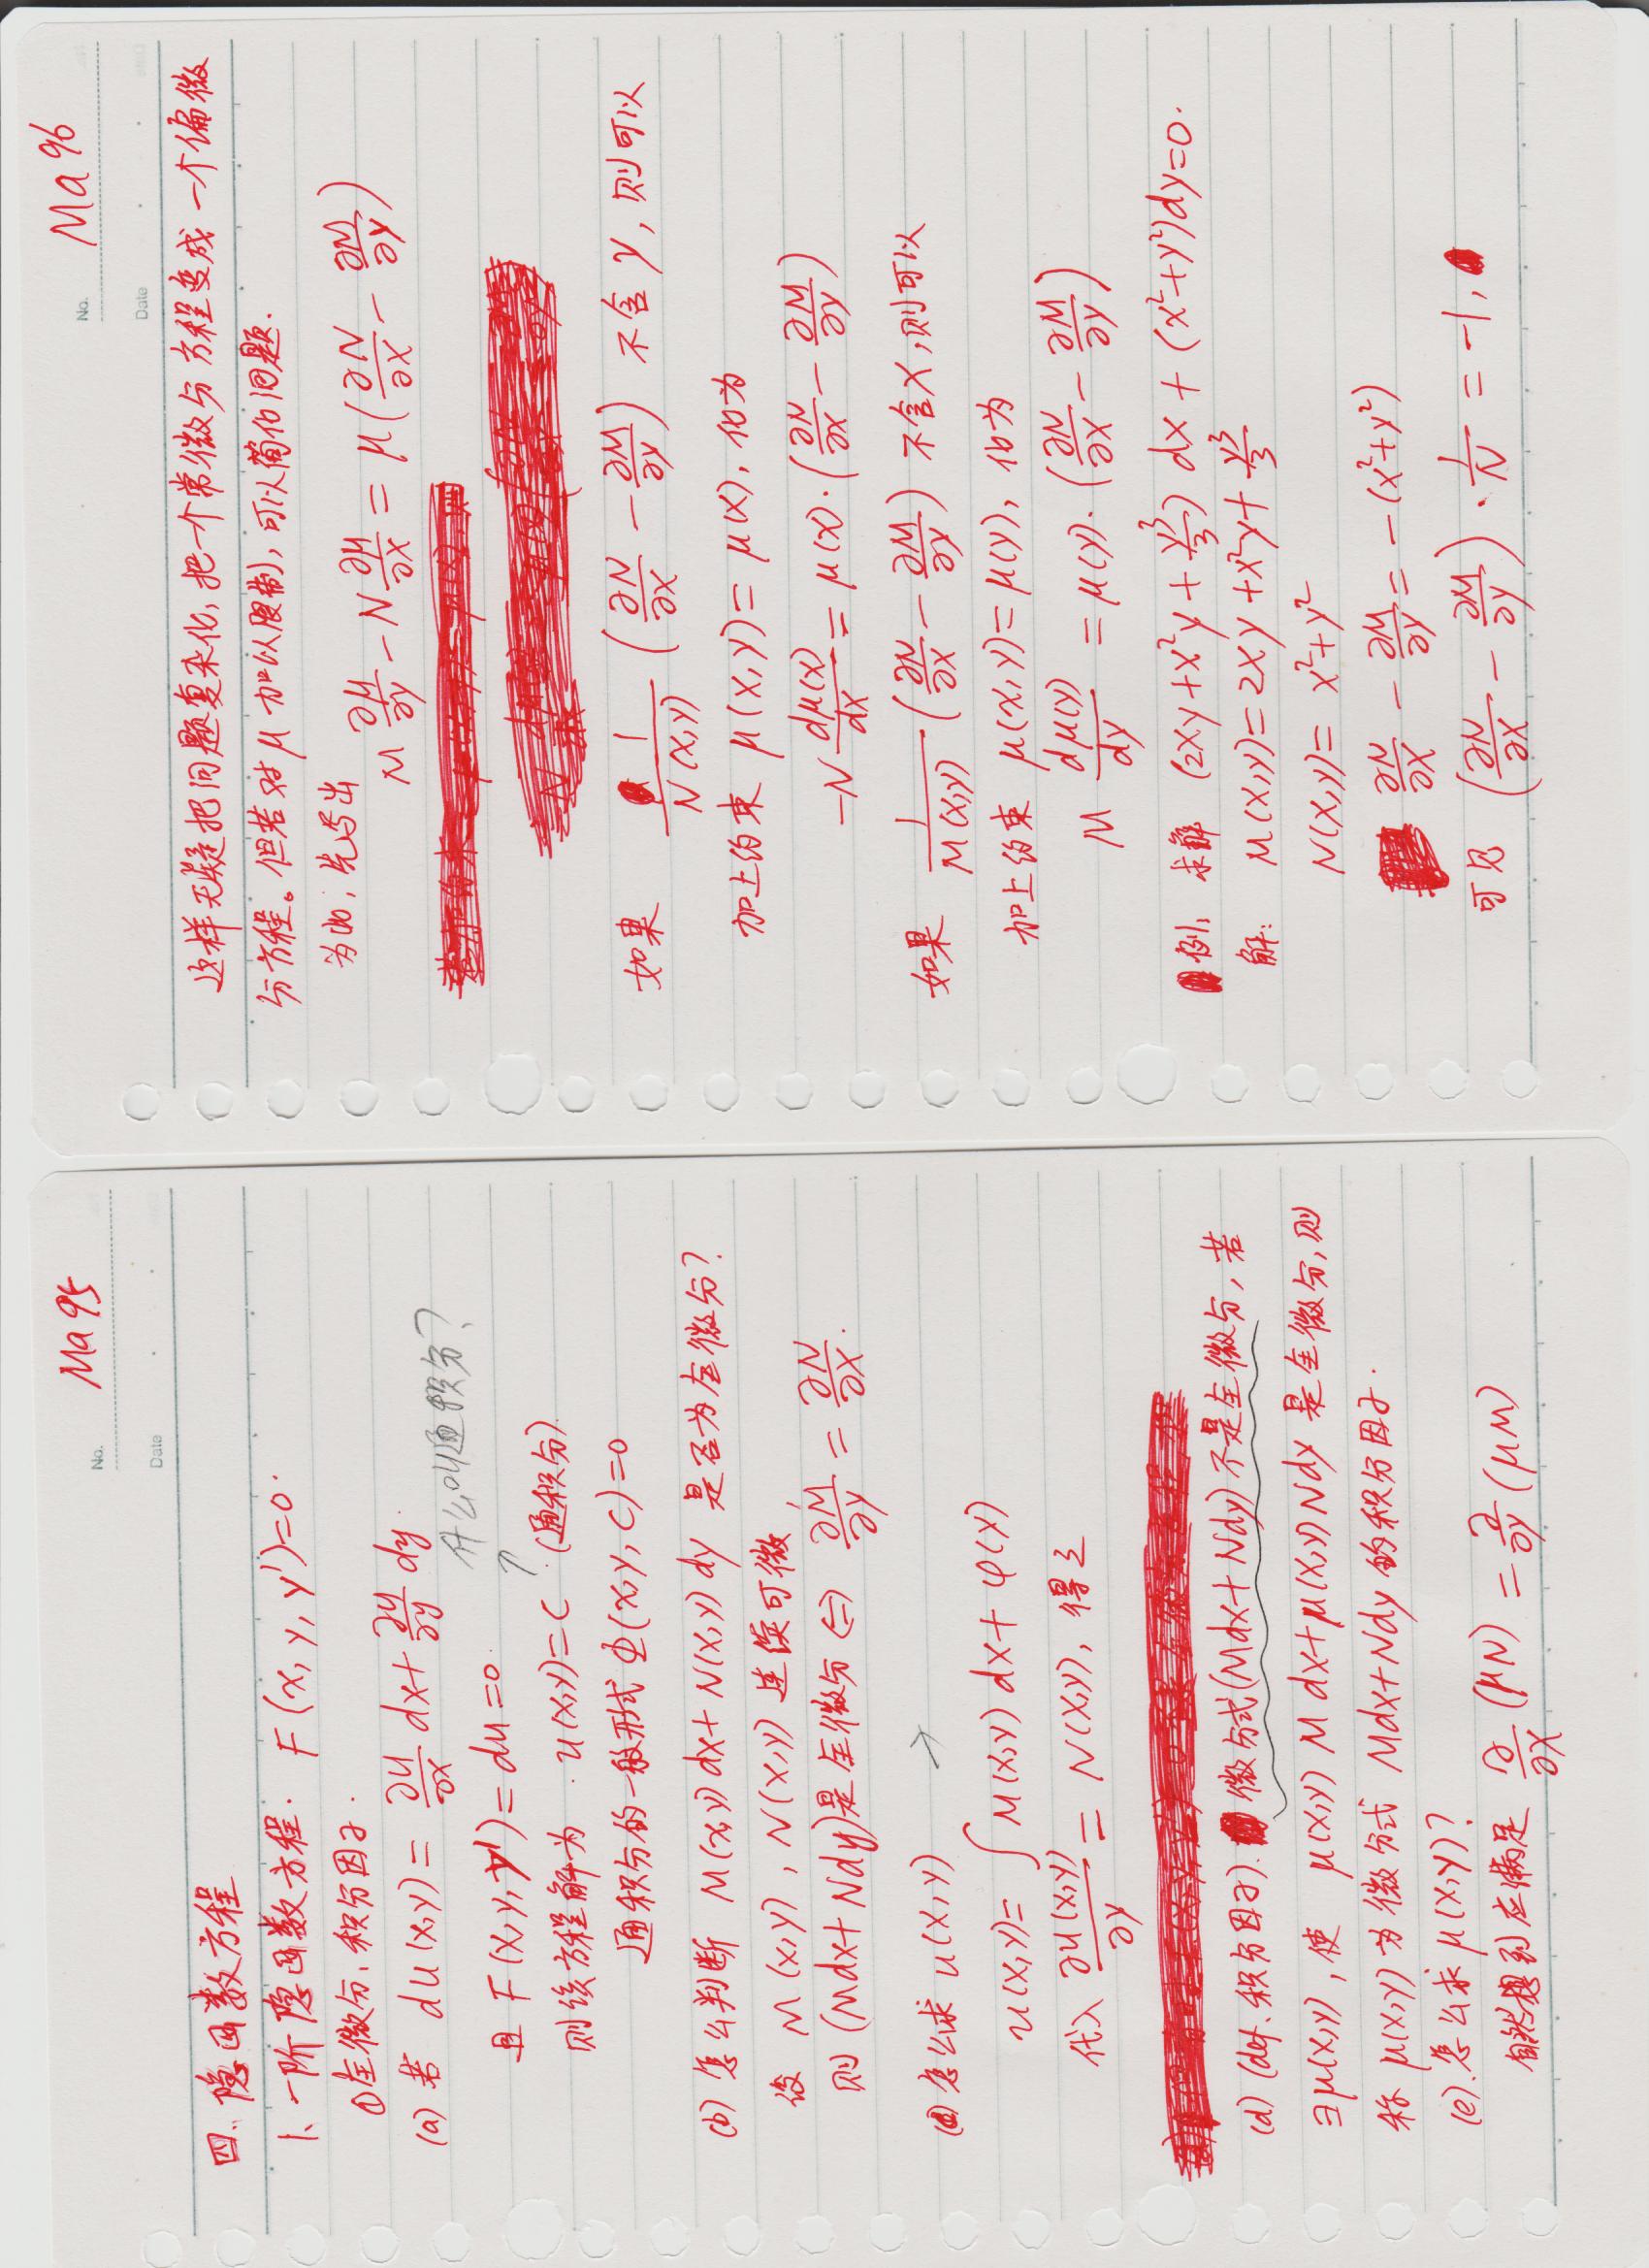 No. Ma 95
Date
四. 隐函数方程
1、一阶隐函数方程. F(x, y, y')=0.
①全微分、积分因子.
(a) 若 du(x,y) = ∂u/∂x dx + ∂u/∂y dy.
什么叫通积分?
且 F(x,y,y') = du = 0.
则该方程解为 . u(x,y)=C . (通积分).
通积分的一般形式 Φ(x,y,C)=0
(b) 怎么判断 M(x,y)dx+N(x,y)dy 是否为全微分?
设 M(x,y), N(x,y) 连续可微,
则 (Mdx+Ndy)是全微分 ⇔ ∂M/∂y = ∂N/∂x.
怎么求 u(x,y) →
u(x,y)= ∫ M(x,y) dx + φ(y)
代入 ∂u(x,y)/∂y = N(x,y), 得之
(d) (def. 积分因子). 微分式(Mdx+Ndy)不是全微分, 若
∃μ(x,y), 使 μ(x,y) M dx+μ(x,y)Ndy 是全微分, 则
称 μ(x,y) 为微分式 Mdx+Ndy 的积分因子.
(e). 怎么求 μ(x,y)?
自然想到应满足 ∂/∂x (μN) = ∂/∂y (μM)
No. Ma 96
Date
这样无疑把问题复杂化, 把一个常微分方程变成一个偏微
分方程。但若对 μ 加以限制, 可以简化问题.
为此, 先写出
M ∂μ/∂y - N ∂μ/∂x = μ(∂N/∂x - ∂M/∂y)
如果 1/N(x,y) (∂N/∂x - ∂M/∂y) 不含 y, 则可以
加上约束 μ(x,y) = μ(x), 化为
-N dμ(x)/dx = μ(x)·(∂N/∂x - ∂M/∂y)
如果 1/M(x,y) (∂N/∂x - ∂M/∂y) 不含x, 则可以
加上约束 μ(x,y)=μ(y), 化为
M dμ(y)/dy = μ(y)·(∂N/∂x - ∂M/∂y)
例: 求解 (2xy+x²y+y³/3) dx + (x²+y²)dy=0.
解: M(x,y)= 2xy+x²y+y³/3
N(x,y)= x²+y²
∂N/∂x - ∂M/∂y = -(x²+y²)
可见 (∂N/∂x - ∂M/∂y)·1/N = -1,